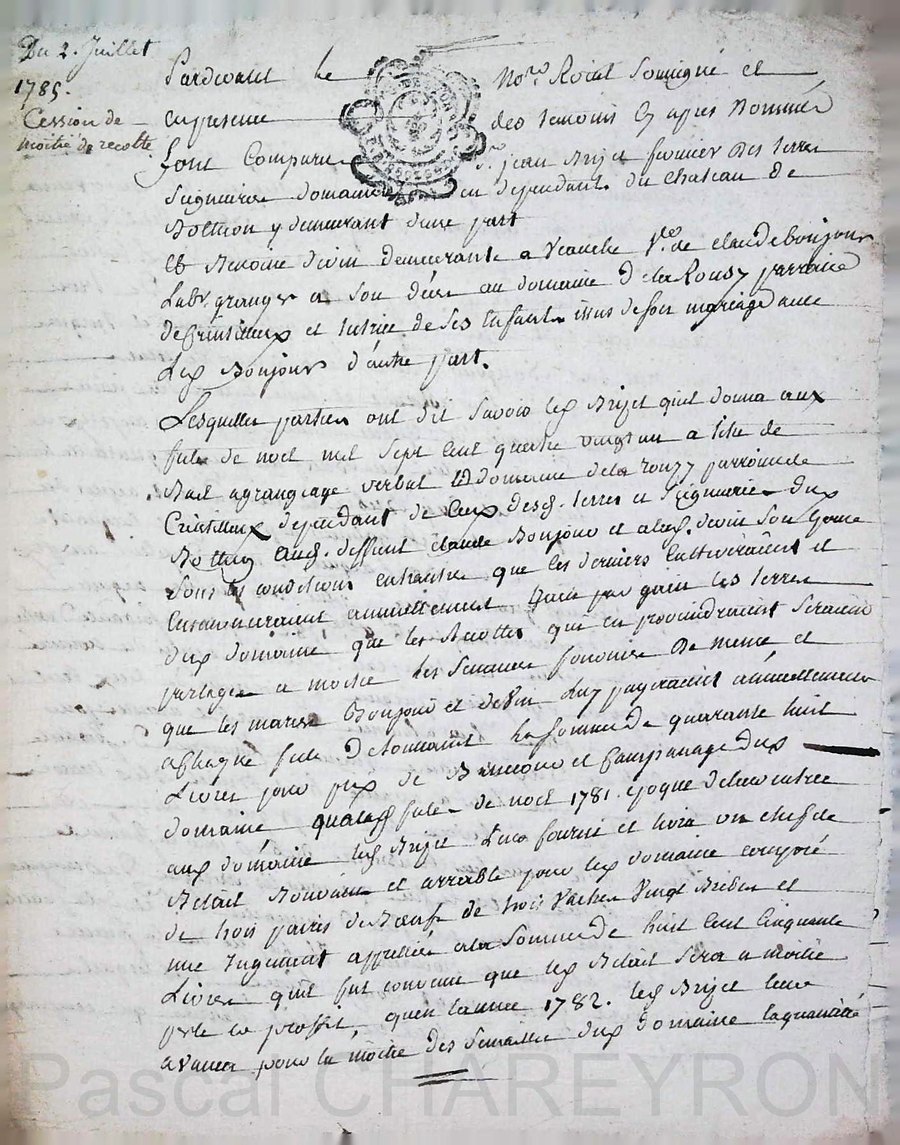 Du 2. Juillet
1785.
Cession de
moitié de recolte
Pardevant le Nore. Roial soussigné et
en presence des temoins cy apres Nommés
font Comparu jean Brijet fermier des terres
Seigneurie domaines en dependants du Chateau de
Botheon y demeurant dune part
Et demeurante a Veauche Ve. de claude bonjour
Labr. granger a son décès au domaine de la Rouzy parroisse
de Crintilleux et tutrice de ses Enfants issus de son mariage avec
Led Bonjour d'autre part.
Lesquelles parties ont dit savoir led Brijet quil donna aux
fete de noel mil sept cent quatre vingt un a titre de
Bail a grangeage verbal led domaine de la rouzy parroisse de
Crintilleux dependant de desd. terres et Seigneurie dud
deffunt claude Bonjour et a son Gendre
Sous les conditions que les derniers cultiveraient et
annuellement les terres
dud domaine que les Recoltes qui en proviendraient seraient
partagée a moitié les Semances fournies de meme et
que les maries Bonjour et devin luy payeraient annuellement
a chaque fete de toussaint la somme de quarante huit
Livres pour prix de dud
domaine qu'aud fete de noel 1781. epoque de leur entrée
aud domaine led Brijet leur fournit et livra un chef de
Betail et arrable pour led domaine composé
de trois paires de Bœufs de trois Vaches Vingt Brebis et
une Jument appretiée a la Somme de huit cent Cinquante
Livres quil fut convenu que led Betail sera a moitié
perte et proffit, qu'en lannee 1782. led Brijet leur
avança pour la moitié des Semailles dud domaine la quantité
Pascal CHAREYRON